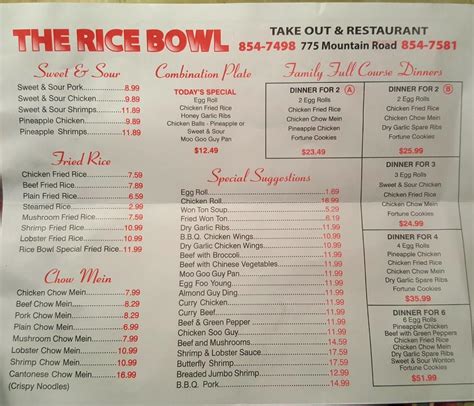 THE RICE BOWL
TAKE OUT & RESTAURANT
854-7498 775 Mountain Road 854-7581
Sweet & Sour
Sweet & Sour Pork 8.99
Sweet & Sour Chicken 9.89
Sweet & Sour Shrimps 11.89
Pineapple Chicken 9.89
Pineapple Shrimps 11.89
Fried Rice
Chicken Fried Rice 7.59
Beef Fried Rice 7.99
Plain Fried Rice 6.59
Steamed Rice 2.99
Mushroom Fried Rice 7.59
Shrimp Fried Rice 10.99
Lobster Fried Rice 10.99
Rice Bowl Special Fried Rice 11.99
Chow Mein
Chicken Chow Mein 7.99
Beef Chow Mein 8.29
Pork Chow Mein 8.29
Plain Chow Mein 6.59
Mushroom Chow Mein 7.99
Lobster Chow Mein 10.99
Shrimp Chow Mein 10.99
Cantonese Chow Mein 16.99
(Crispy Noodles)
Combination Plate
TODAY'S SPECIAL
Egg Roll
Chicken Fried Rice
Honey Garlic Ribs
Chicken Balls - Pineapple or
Sweet & Sour
Moo Goo Guy Pan
$12.49
Special Suggestions
Egg Roll 1.69
Chicken Roll 16.99
Won Ton Soup
Fried Won Ton
Dry Garlic Ribs
B.B.Q. Chicken Wings
Dry Garlic Chicken Wings
Beef with Broccoli
Beef with Chinese Vegetables
Moo Goo Guy Pan
Egg Foo Young
Almond Guy Ding
Curry Chicken
Curry Beef
Beef & Green Pepper
Chicken Soo Guy
Beef and Mushrooms
Shrimp & Lobster Sauce
Butterfly Shrimp
Breaded Jumbo Shrimp
B.B.Q. Pork
Family Full Course Dinners
DINNER FOR 2 A
2 Egg Rolls
Chicken Fried Rice
Chicken Chow Mein
Pineapple Chicken
Fortune Cookies
$23.49
DINNER FOR 2 B
2 Egg Rolls
Chicken Fried Rice
Dry Garlic Spare Ribs
Pineapple Chicken
Fortune Cookies
$25.99
DINNER FOR 3
3 Egg Rolls
Sweet & Sour Chicken
Chicken Fried Rice
Chicken Chow Mein
Fortune Cookies
$24.99
DINNER FOR 4
4 Egg Rolls
Pineapple Chicken
Chicken Fried Rice
Chicken Chow Mein
Dry Garlic Spare Ribs
Fortune Cookies
$35.99
DINNER FOR 6
6 Egg Rolls
Pineapple Chicken
Chicken Fried Rice
Beef with Green Peppers
Chicken Chow Mein
Dry Garlic Spare Ribs
Sweet & Sour Wonton
Fortune Cookies
$51.99